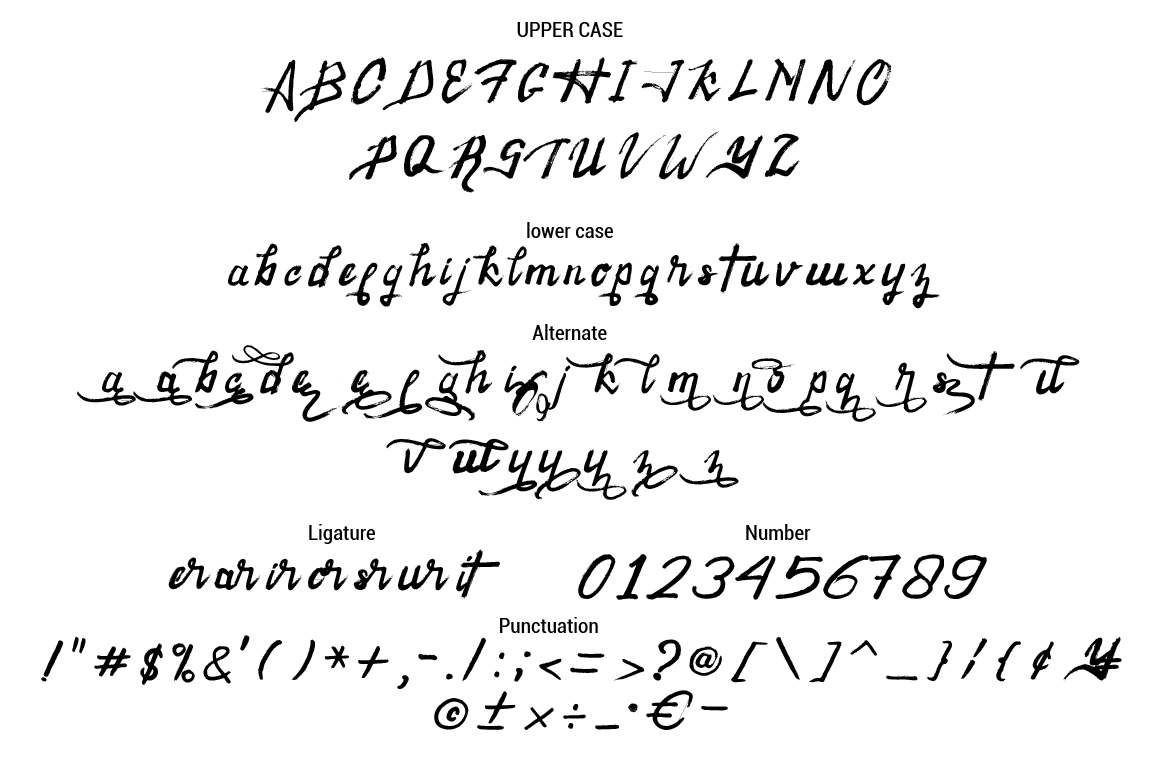 UPPER CASE
ABCDEFGHIJKLMNO
PQRSTUVWYZ
lower case
abcdefghijklmnopqrstuvwxyz
Alternate
a abcde e f ghij k l m n o p q r s t u
v w y y y z z
Ligature Number
er ar ir or sr ur it 0123456789
Punctuation
!"#$%&'()*+,-./:;<=>?@[\]^_}/{¢¥
©±×÷_·€–